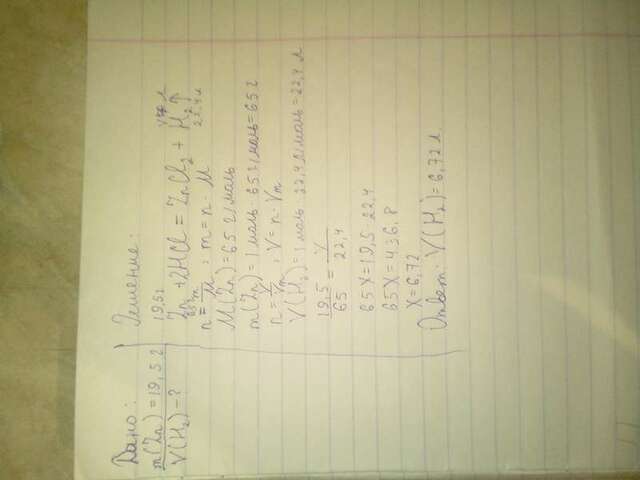 Дано:
m(Zn) = 19,5 г
V(H₂) - ?
Решение:
19,5г V л
Zn + 2HCl = ZnCl₂ + H₂↑
65г 22,4 л
n = m/M ; m = n · M
M(Zn) = 65 г/моль
m(Zn) = 1 моль · 65 г/моль = 65 г
n = V/Vm ; V = n · Vm
V(H₂) = 1 моль · 22,4 л/моль = 22,4 л
19,5/65 = V/22,4
65X = 19,5 · 22,4
65X = 436,8
X = 6,72
Ответ: V(H₂) = 6,72 л.